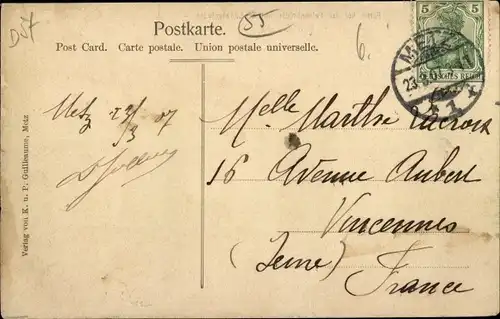 D57
55
6.
Postkarte.
Post Card. Carte postale. Union postale universelle.
5 5
DEUTSCHES REICH
METZ
1
Metz 22/3 07
Melle Marthe Lacroix
16 Avenue Aubert
Vincennes
(Seine)
France
Verlag von K. u. P. Guillaume, Metz